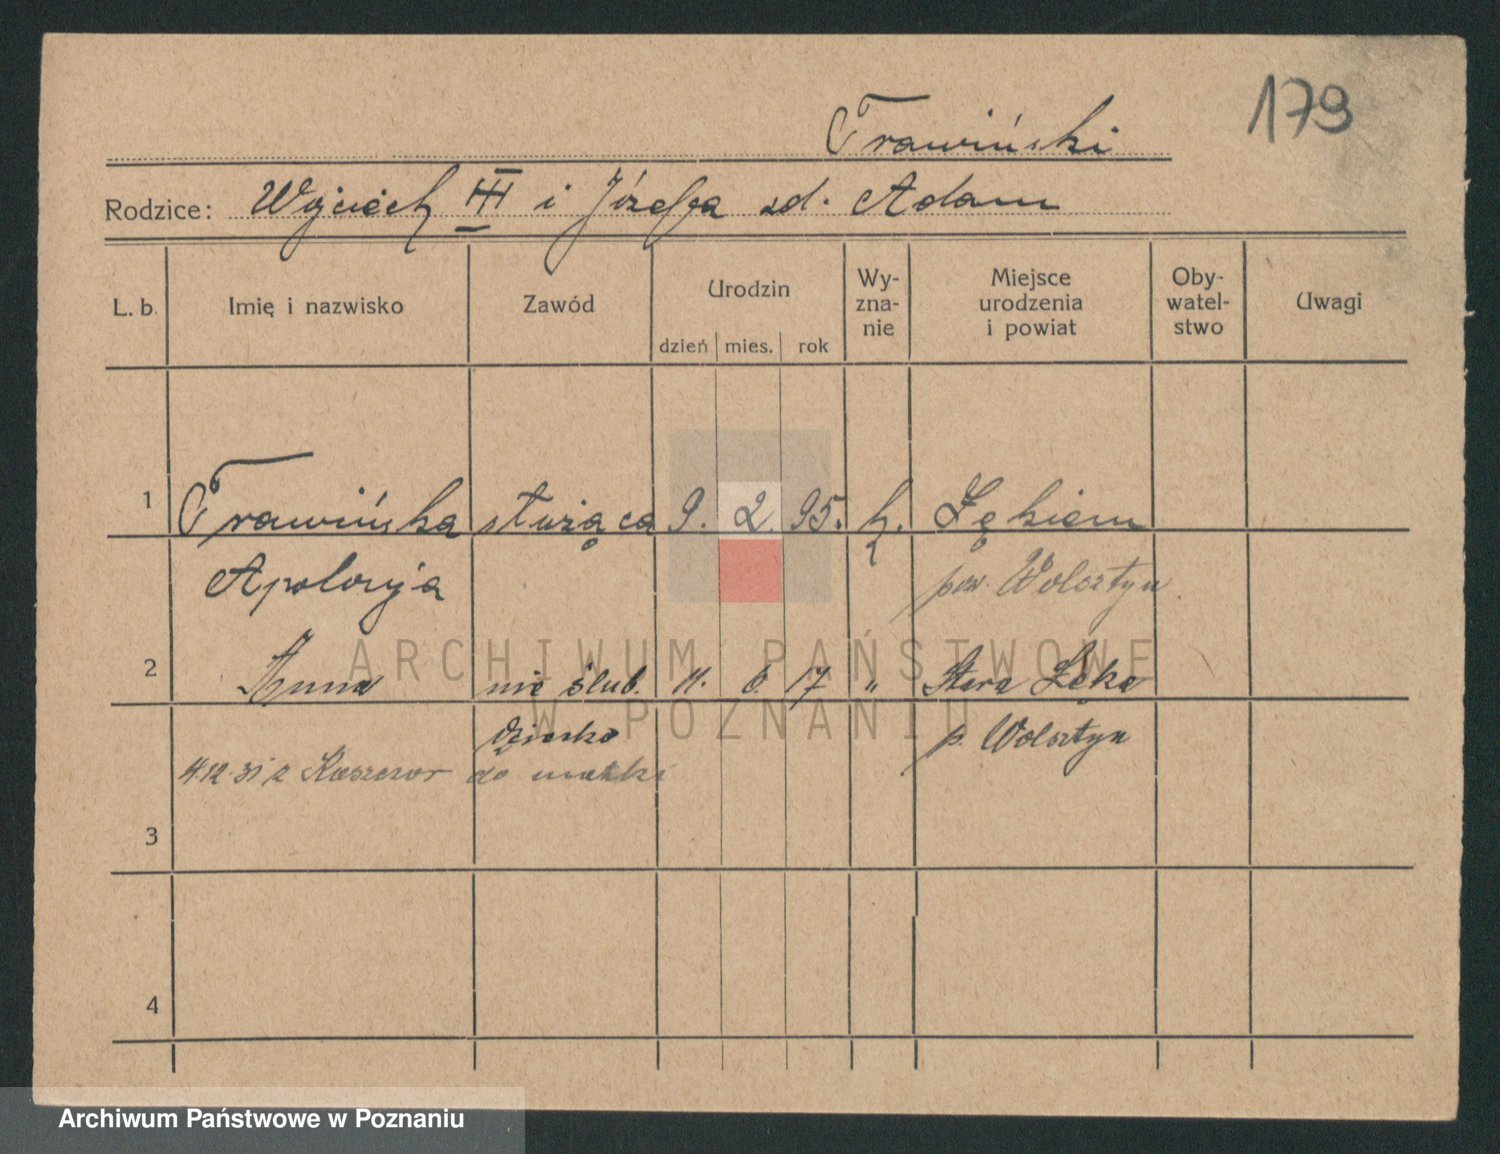 179
Trawiński
Rodzice: Wojciech III i Józefa zd. Adam
L. b. Imię i nazwisko Zawód Urodzin dzień mies. rok Wy-zna-nie Miejsce urodzenia i powiat Oby-watel-stwo Uwagi
1 Trawińska służąca 9. 2. 95. k. Łękiem
Apolonja pow. Wolsztyn.
2 Anna nie ślub. 11. 6. 17 " Stara Łęka
dziecko p. Wolsztyn
4.12.31 z Kaszczor do matki
3
4
ARCHIWUM PAŃSTWOWE
W POZNANIU
Archiwum Państwowe w Poznaniu